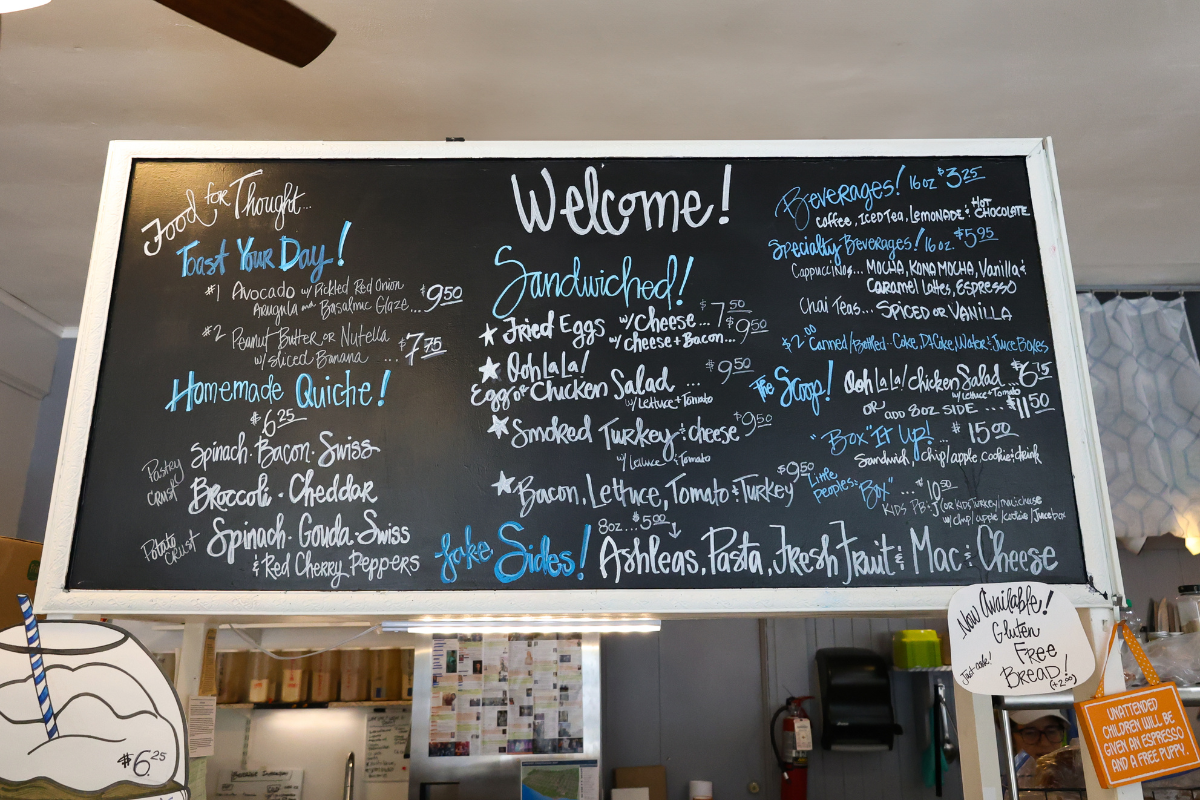 Food for Thought...
Toast Your Day!
#1 Avocado w/ Pickled Red Onion
Arugula and Basalmic Glaze... $9.50
#2 Peanut Butter or Nutella
w/ sliced Banana ... $7.75
Homemade Quiche!
$6.25
Pastry Crust
Spinach · Bacon · Swiss
Broccoli · Cheddar
Potato Crust
Spinach · Gouda · Swiss
& Red Cherry Peppers
Welcome!
Sandwiched!
★ Fried Eggs w/ Cheese... $7.50
w/ cheese + Bacon... $9.50
★ Ooh La La!
Egg or Chicken Salad ... $9.50
w/ Lettuce + Tomato
★ Smoked Turkey & cheese $9.50
w/ Lettuce + Tomato
★ Bacon, Lettuce, Tomato & Turkey $9.50
Take Sides! 8oz... $5.00
Ashleas, Pasta, Fresh Fruit & Mac & Cheese
Beverages! 16 oz $3.25
Coffee, Iced Tea, Lemonade & Hot Chocolate
Specialty Beverages! 16 oz. $5.95
Cappuccinos... Mocha, Kona Mocha, Vanilla &
Caramel Lattes, Espresso
Chai Teas... Spiced or Vanilla
$2.00 Canned/Bottled.. Coke, D.Coke, Water & Juice Boxes
The Scoop! Ooh La La! chicken Salad ...
w/ Lettuce + Tomato
or add 8oz side ... $11.50
"Box" It Up! ... $15.00
Sandwich, chip/apple, cookie & drink
Little Peoples "Box" ... $10.50
Kids PB&J (or Kids Turkey/
w/ chip/apple/cookie/Juice box
Now Available!
Gluten
Free
Bread!
Just ask!
(+2.00)
$6.25
UNATTENDED
CHILDREN WILL BE
GIVEN AN ESPRESSO
AND A FREE PUPPY.